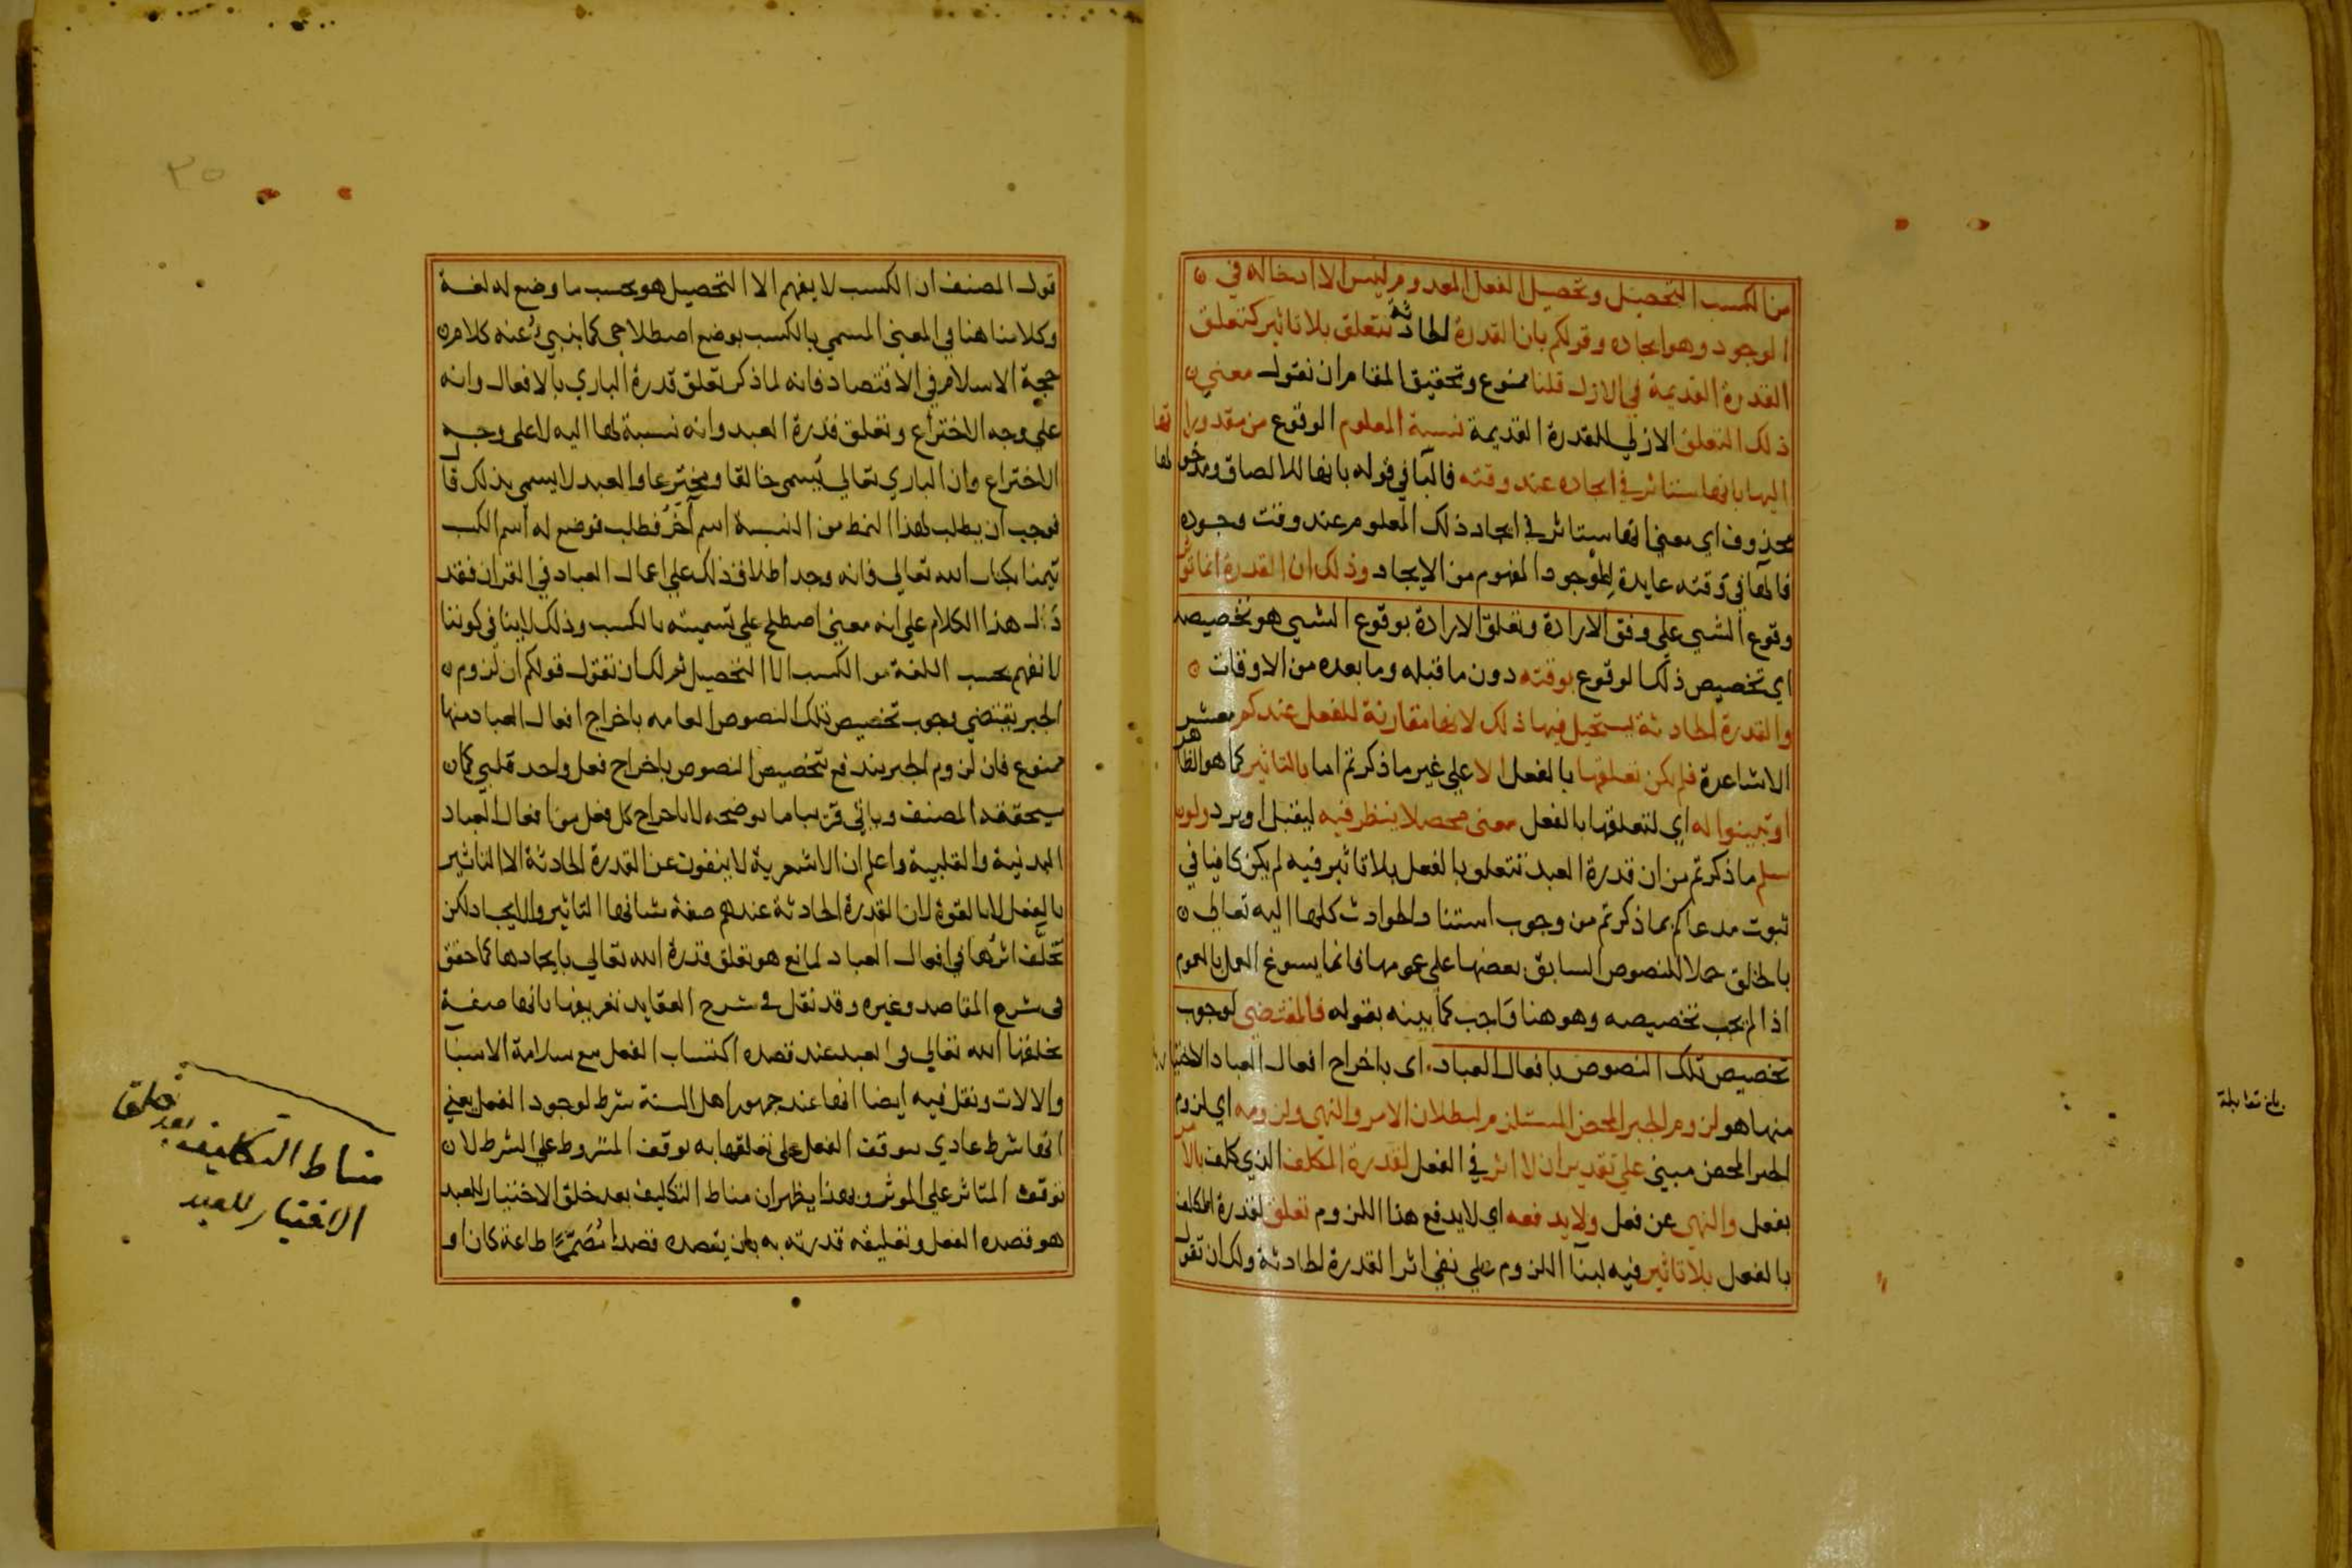 من الكسب التحصيل وتحصيل الفعل المعدوم ليس الا ادخاله في
الوجود وهو ايجاده وقولكم بان القدرة الحادثة تتعلق بلا تاثير كتعلق
القدرة القديمة في الازل قلنا ممنوع وتحقيق المقام ان نقول معني
ذلك التعلق الازلي للقدرة القديمة نسبة المعلوم الوقوع من مقدوراتها
اليها بانها ستاثر في ايجاده عند وقته فالبا في قوله بانها للالصاق ومدخولها
محذوف اي بمعني انها ستاثر في ايجاد ذلك المعلوم عند وقت وجوده
فالها في وقته عايدة للموجود المفهوم من الايجاد وذلك ان القدرة انما تؤثر
وقوع الشي علي وفق الارادة وتعلق الارادة بوقوع الشي هو تخصيصه
اي تخصيص ذلك الوقوع بوقته دون ما قبله وما بعده من الاوقات
والقدرة الحادثة يستحيل فيها ذلك لانها مقارنة للفعل عندكم معشر
الاشاعرة فلم يكن تعلقها بالفعل الا علي غير ما ذكرتم اما بالتاثير كما هو الظاهر
او تبينوا له اي لتعلقها بالفعل معني محصلا ينظر فيه ليقبل او يرد ولو
سلم ما ذكرتم من ان قدرة العبد تتعلق بالفعل بلا تاثير فيه لم يكن كافيا في
ثبوت مدعاكم بما ذكرتم من وجوب استناد الحوادث كلها اليه تعالي
بالخلق حملا للنصوص السابق بعضها علي عمومها فانما يسوغ العمل بالعموم
اذا لم يجب تخصيصه وهو هنا واجب كما بينه بقوله فالمقتضي لوجوب
تخصيص تلك النصوص بافعال العباد اي باخراج افعال العباد الاختيا
منها هو لزوم الجبر المحض المستلزم لبطلان الامر والنهي ولزومه اي لزوم
الجبر المحض مبني علي تقدير ان لا اثر في الفعل لقدرة المكلف الذي كلف بالامر
بفعل والنهي عن فعل ولا يدفعه اي لا يدفع هذا اللزوم تعلق لقدرة المكلف
بالفعل بلا تاثير فيه لبنا اللزوم علي نفي اثر القدرة الحادثة ولك ان تقول
بلغ مقابلة
٣٥
قول المصنف ان الكسب لا يفهم الا التحصيل هو بحسب ما وضع له لغة
وكلامنا هنا في المعني المسمي بالكسب بوضع اصطلاحي كما ينبيء عنه كلام
حجة الاسلام في الاقتصاد فانه لما ذكر تعلق قدرة الباري بالافعال وانه
علي وجه الاختراع وتعلق قدرة العبد وانه نسبة لها اليه لا علي وجه
الاختراع وان الباري تعالي يسمي خالقا ومخترعا والعبد لا يسمي بذلك قال
فوجب ان يطلب لهذا النمط من النسبة اسم آخر فطلب فوضع له اسم الكسب
تيمنا بكتاب الله تعالي فانه وجد اطلاق ذلك علي اعمال العباد في القران فقد
دل هذا الكلام علي انه معني اصطلح علي تسميته بالكسب وذلك لا ينافي كوننا
لا نفهم بحسب اللغة من الكسب الا التحصيل ثم لك ان تقول قولكم ان لزوم
الجبر يقتضي وجوب تخصيص تلك النصوص العامه باخراج افعال العباد منها
ممنوع فان لزوم الجبر يندفع بتخصيص النصوص باخراج فعل واحد قلبي كما
سيحققه المصنف وياتي قريبا ما يوضحه لا باخراج كل فعل من افعال العباد
البدنية والقلبية واعلم ان الاشعرية لا ينفون عن القدرة الحادثة الا التاثير
بالفعل لا بالقوة لان القدرة الحادثة عندهم صفة شانها التاثير والايجاد لكن
تخلف اثرها في افعال العباد لمانع هو تعلق قدرة الله تعالي بايجادها كما حقق
في شرح المقاصد وغيره وقد نقل في شرح العقايد تعريفها بانها صفة
يخلقها الله تعالي في العبد عند قصده اكتساب الفعل مع سلامة الاسبا
والالات ونقل فيه ايضا انها عند جمهور اهل السنة شرط لوجود الفعل يعني
انها شرط عادي يتوقف الفعل علي تعلقها به توقف المشروط علي الشرط لا
توقف المتاثر علي الموثر وبهذا يظهر ان مناط التكليف بعد خلق الاختيار للعبد
هو قصده الفعل وتعليقه قدرته به بان يقصده قصدا مصمما طاعة كان او
مناط التكليف بعد خلق
الاختيار للعبد